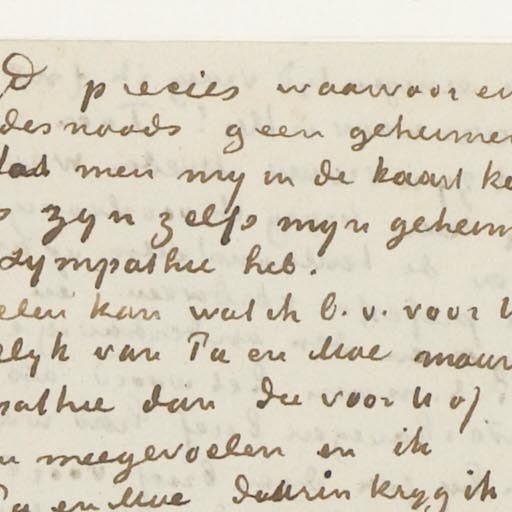 D precies waarvoor en
desnoods geen geheimen
dat men my in de kaart
zyn zelfs myn geheim
sympathie heb.
elen kan wat ik b.v. voor U
elyk van Pa en Moe maar
pathie dan die voor U of
n meegevoelen en ik
Pa en Moe daarin kryg ik